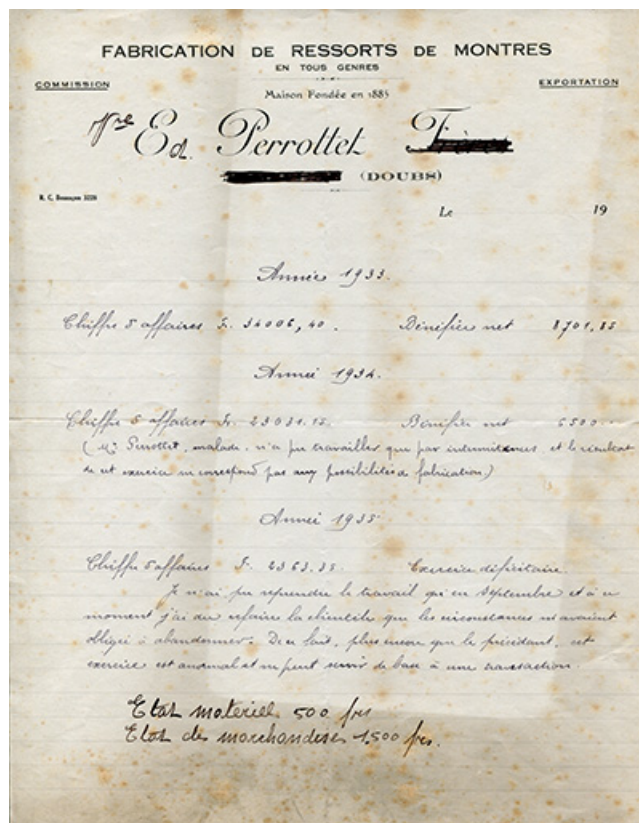 FABRICATION DE RESSORTS DE MONTRES
EN TOUS GENRES
COMMISSION
EXPORTATION
Maison Fondée en 1885
Vve Ed. Perrottet Frères
(DOUBS)
R. C. Besançon
Le 19
Année 1933.
Chiffre d'affaires Fr. 34006,40. Bénéfice net 8701,85
Année 1934.
Chiffre d'affaires Fr. 23031.55. Bénéfice net 6500.-
(Mr Perrottet, malade, n'a pu travailler que par intermitences, et le résultat
de cet exercice ne correspond pas aux possibilités de fabrication.)
Année 1935
Chiffre d'affaires Fr. 2363.35. Exercice déficitaire.
Je n'ai pu reprendre le travail qu'en Septembre et à ce
moment j'ai dû refaire la clientèle que les circonstances m'avaient
obligée à abandonner. De ce fait, plus encore que le précédent, cet
exercice est anormal et ne peut servir de base à une transaction.
Etat matériel 500 frs
Etat des marchandises 1,500 frs.